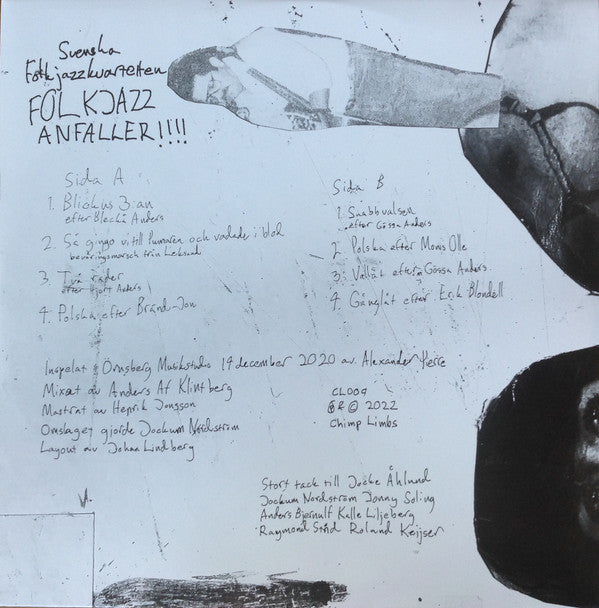 Svenska
Folkjazzkvartetten
FOLKJAZZ
ANFALLER!!!!
Sida A
1. Blickus 3:an
efter Blecků Anders
2. Så gingo vi till Punaren och vadade i blod
beværingsmarsch från Leksand
3. Två rader
efter Hjort Anders
4. Polska efter Bränd-Jon
Sida B
1. Snabbvalsen
efter Gössa Anders
2. Polska efter Monis Olle
3. Vallåt efter Gössa Anders.
4. Gånglåt efter Erik Blondell
Inspelat i Örnsberg Musikstudio 19 december 2020 av Alexander
Mixat av Anders Af Klintberg
Mastrat av Henrik Jonsson
Omslaget gjorde Jockum Nordström
Layout av Johan Lindberg
CL009
℗ © 2022
Chimp Limbs
Stort tack till Jocke Åhlund
Jockum Nordström Jonny Soling
Anders Bjernulf Kalle Liljeberg
Raymond Strid Roland Keijser